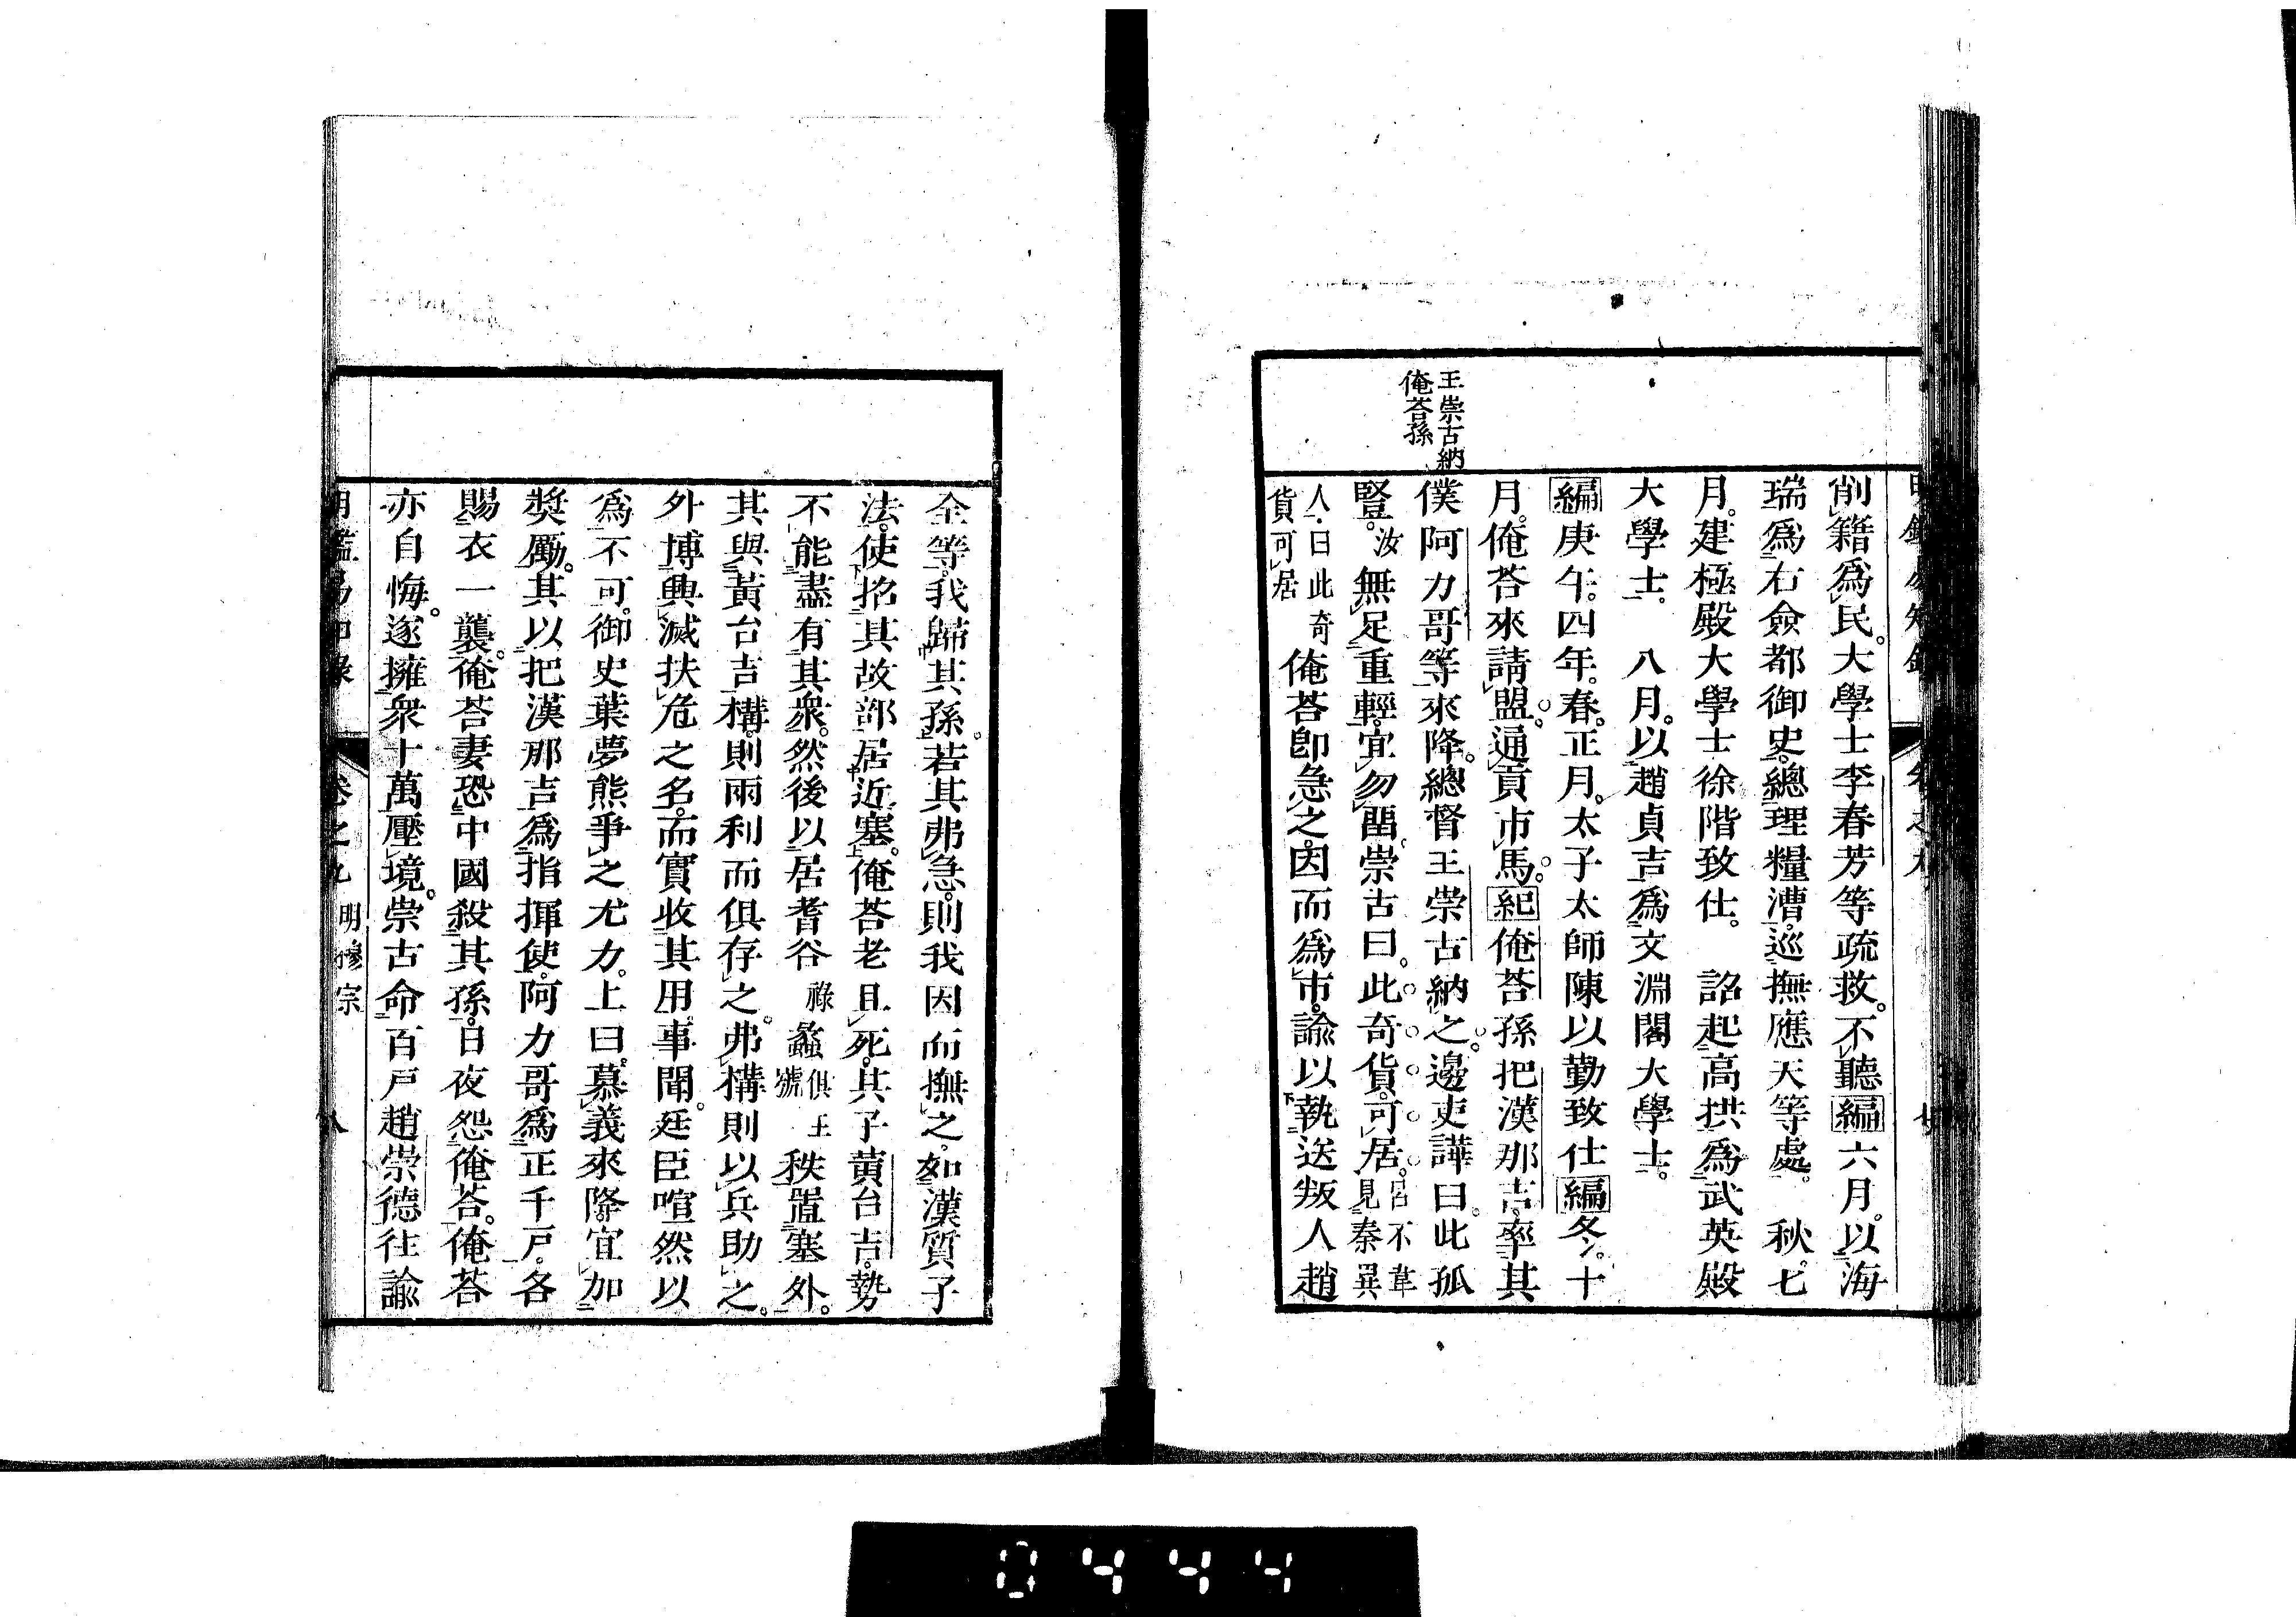 削籍爲民。大學士李春芳等疏救。不聽編六月。以海
瑞爲右僉都御史。總理糧漕。巡撫應天等處。 秋。七
月。建極殿大學士徐階致仕。 詔起高拱爲武英殿
大學士。 八月。以趙貞吉爲文淵閣大學士。
編庚午。四年。春。正月。太子太師陳以勤致仕編冬。十
月。俺荅來請盟。通貢市馬。紀俺荅孫把漢那吉。率其
王崇古納
俺荅孫
僕阿力哥等來降。總督王崇古納之。邊吏譁曰。此孤
豎。汝無足重輕。宜勿畱。崇古曰。此奇貨可居。呂不韋
見秦異
人。曰此奇
貨可居
俺荅卽急之。因而爲市。諭以執送叛人趙
全等。我歸其孫。若其弗急。則我因而撫之。如漢質子
法。使招其故部居近塞。俺荅老且死。其子黃台吉。勢
不能盡有其衆。然後以居耆谷祿蠡俱王
號
秩置塞外。
其與黃台吉構。則兩利而俱存之。弗構則以兵助之。
外博興滅扶危之名。而實收其用。事聞。廷臣喧然以
爲不可。御史葉夢熊爭之尤力。上曰。慕義來降。宜加
奬厲。其以把漢那吉爲指揮使。阿力哥爲正千戸。各
賜衣一襲。俺荅妻恐中國殺其孫。日夜怨俺荅。俺荅
亦自悔。遂擁衆十萬壓境。崇古命百戸趙崇德往諭
明鑑易知錄 卷之九 明穆宗 八
0444